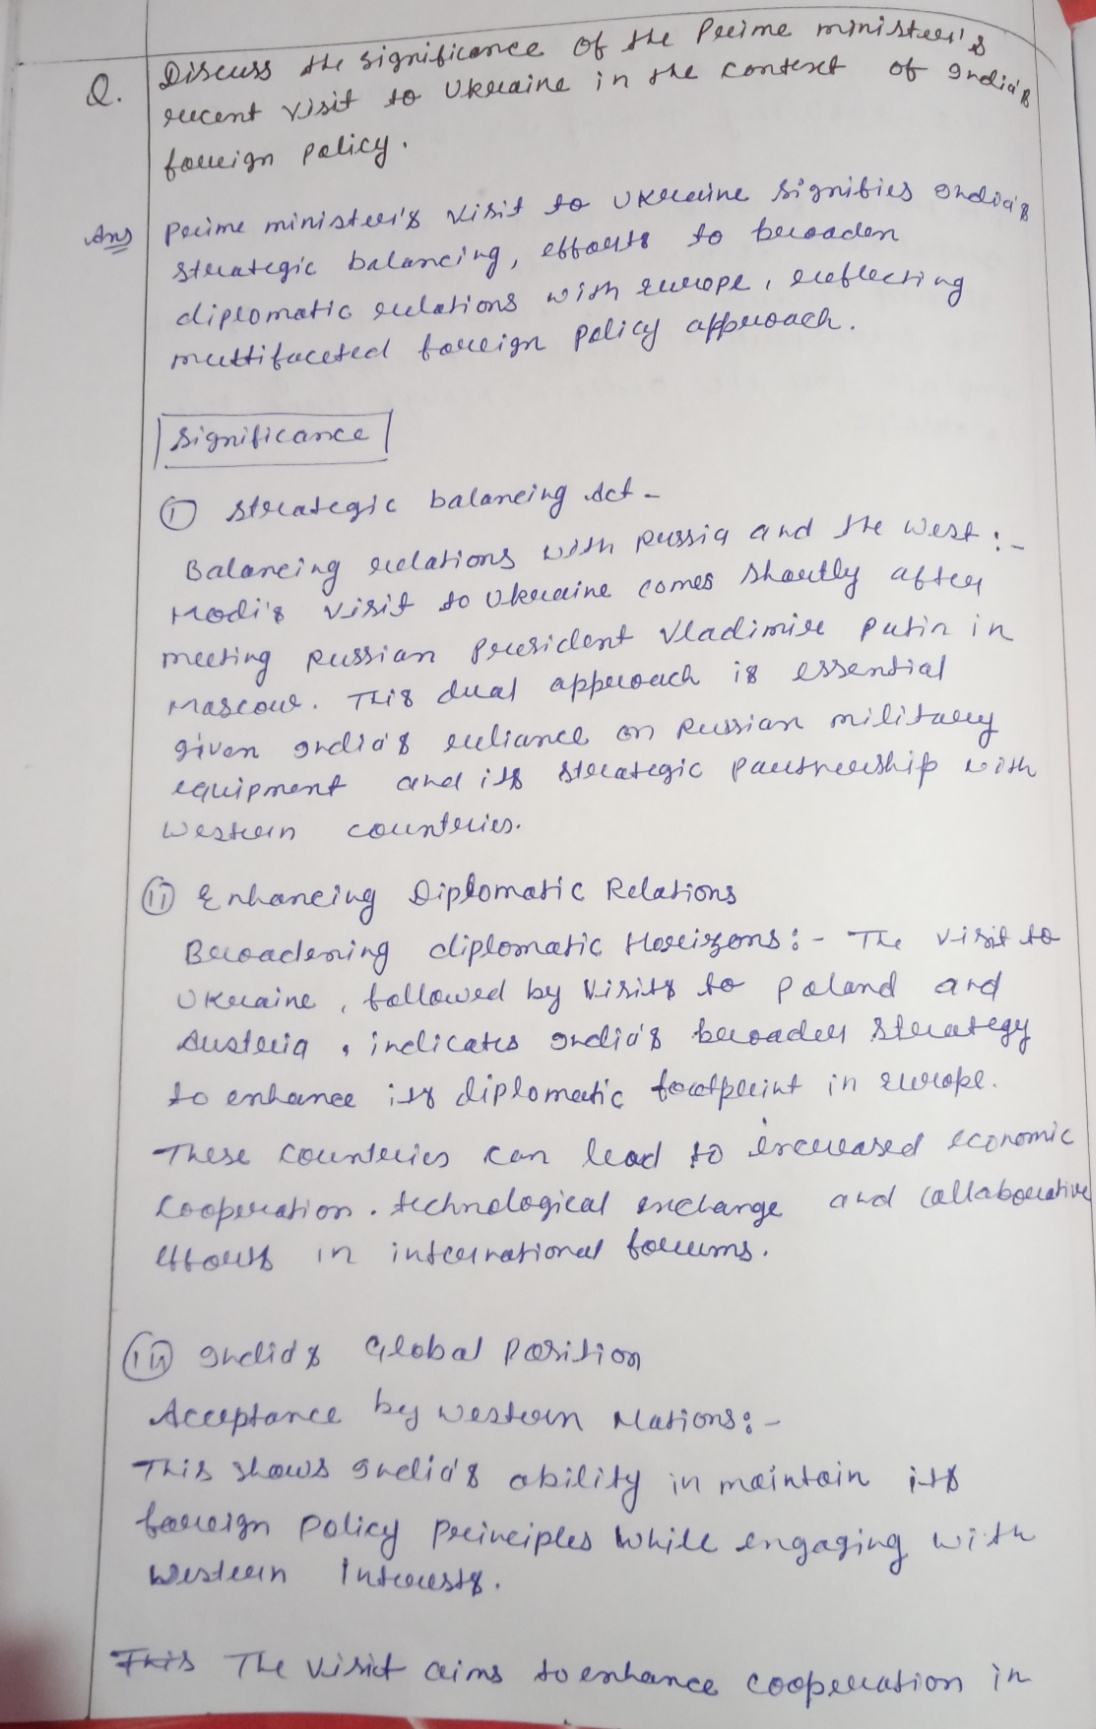 Q. Discuss the significance of the Prime minister's
recent visit to Ukraine in the context of India's
foreign policy.
Ans Prime minister's visit to Ukraine signifies India's
strategic balancing, efforts to broaden
diplomatic relations with europe, reflecting
multifaceted foreign policy approach.
Significance
(i) Strategic balancing Act -
Balancing relations with russia and the west :-
Modi's visit to Ukraine comes shortly after
meeting Russian President Vladimire Putin in
Moscow. This dual approach is essential
given India's reliance on Russian military
equipment and its strategic partnership with
western countries.
(ii) Enhancing Diplomatic Relations
Broadening diplomatic Horizons :- The visit to
Ukraine, followed by visits to Poland and
Austria, indicates India's broader strategy
to enhance its diplomatic footprint in europe.
These countries can lead to increased economic
cooperation. technological exchange and collaborative
efforts in international forums.
(iii) India's Global Position
Acceptance by western Nations :-
This shows India's ability in maintain its
foreign policy principles while engaging with
western interests.
This The visit aims to enhance cooperation in